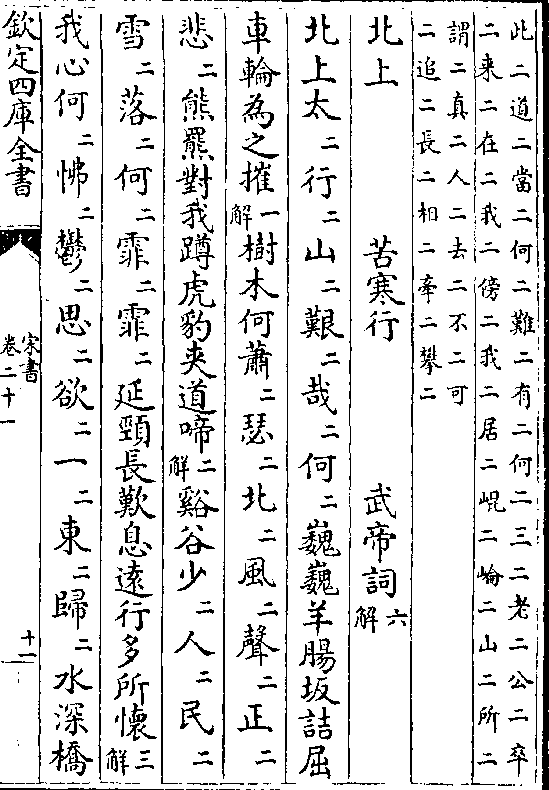 此二道二當二何二難二有二何二三二老二公二卒
二来二在二我二傍二我二居二崐二崘二山二所二
謂二真二人二去二不二可
二追二長二相二牽二攀二
北上 苦寒行 武帝詞六解
北上太二行二山二艱二哉二何二巍巍羊腸坂詰屈
車輪為之摧一解樹木何蕭二瑟二北二風二聲二正二
悲二熊羆對我蹲虎豹夾道啼二解谿谷少二人二民二
雪二落二何二霏二霏二延頸長歎息逺行多所懷三解
我心何二怫二鬱二思二欲二一二東二歸二水深橋
欽定四庫全書
宋書
卷二十一
十一